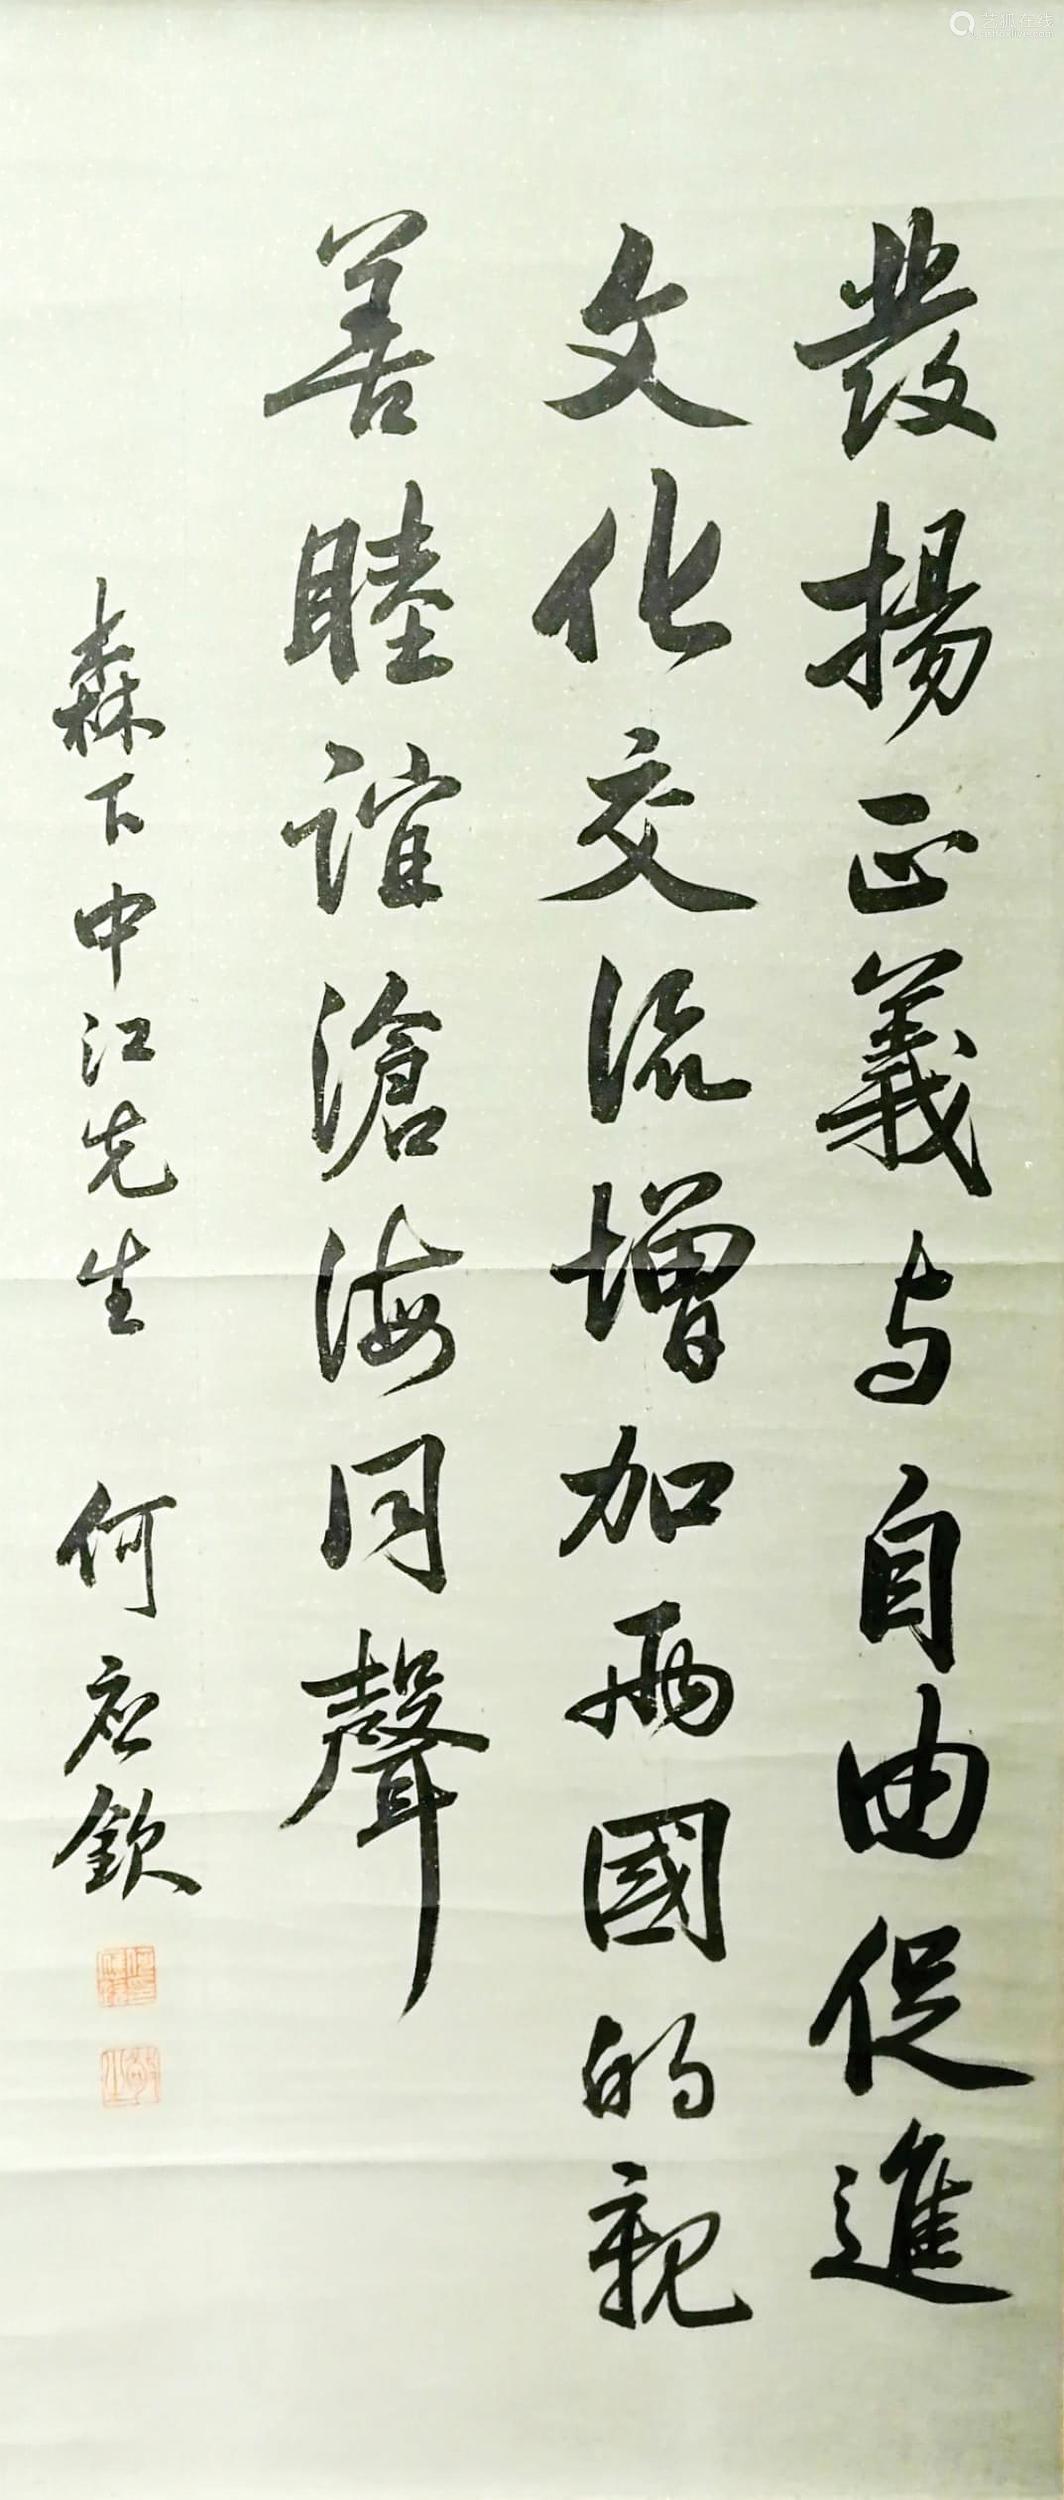 發揚正義与自由促進
文化交流增加兩國的親
善睦誼滄海同聲
森下中江先生 何應欽
艺狐在线